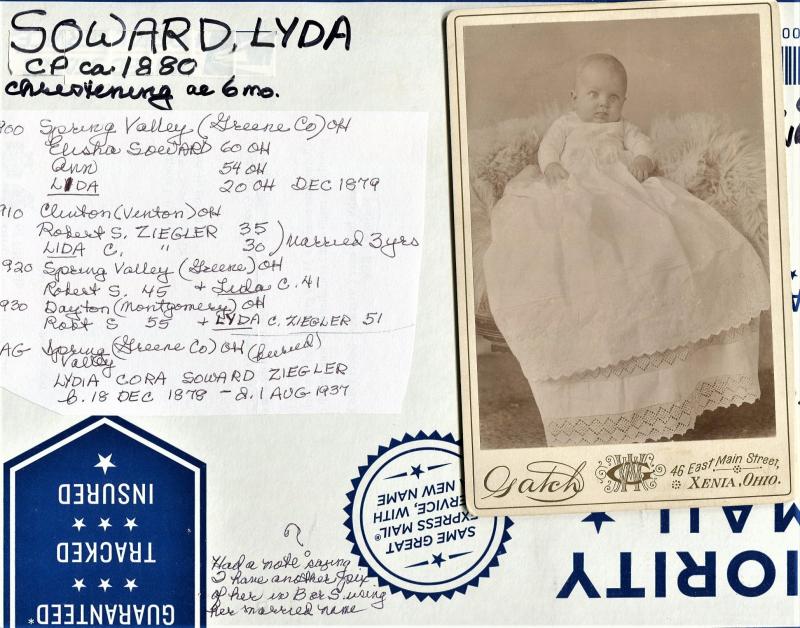 SOWARD, LYDA
CP ca. 1880
christening ae 6 mo.
900 Spring Valley (Greene Co) OH
Elisha SOWARD 60 OH
Ann 54 OH
LIDA 20 OH DEC 1879
910 Clinton (Venton) OH
Robert S. ZIEGLER 35
LIDA C. " 30 ) Married 3 yrs
920 Spring Valley (Greene) OH
Robert S. 45 + Lida C. 41
930 Dayton (Montgomery) OH
Robt S 55 + LYDA C. ZIEGLER 51
AG Spring Valley (Greene Co) OH (buried)
LYDIA CORA SOWARD ZIEGLER
b. 18 DEC 1878 - d. 1 AUG 1937
Gatch
46 East Main Street,
XENIA, OHIO.
?
Had a note saying
I have another pix
of her in B or S using
her married name
GUARANTEED*
TRACKED
INSURED
SAME GREAT
EXPRESS MAIL®
SERVICE, WITH
A NEW NAME
IORITY
MAIL